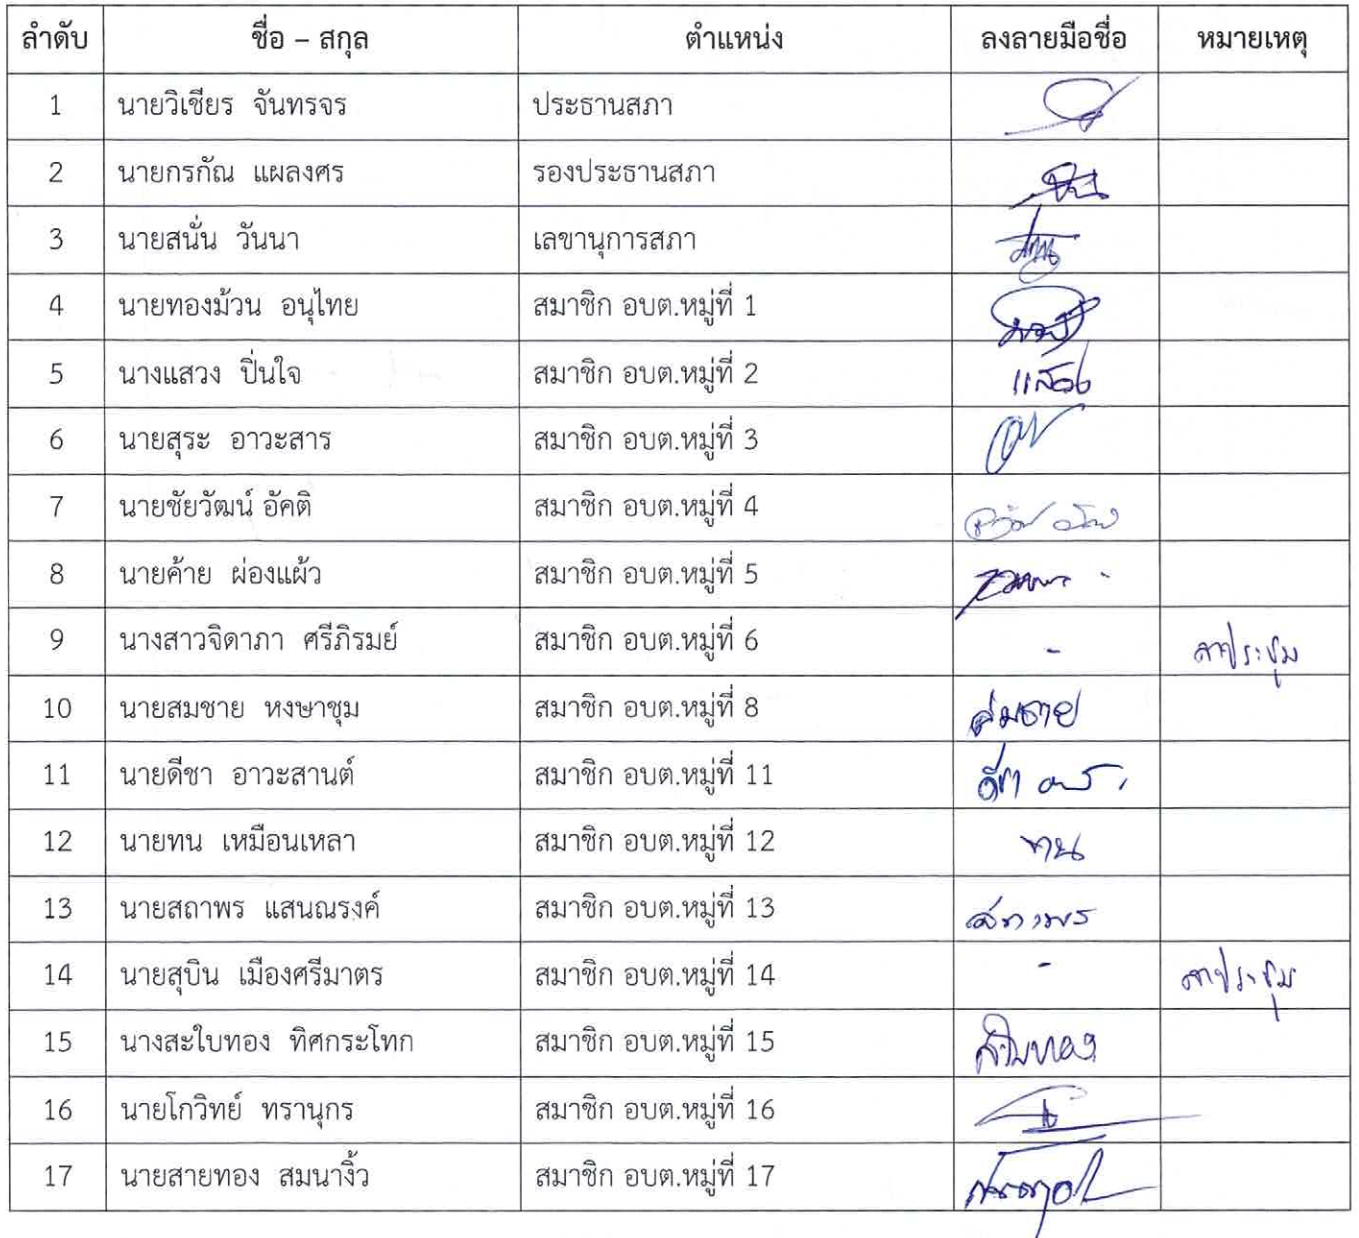 ลำดับ ชื่อ – สกุล ตำแหน่ง ลงลายมือชื่อ หมายเหตุ
1 นายวิเชียร จันทรจร ประธานสภา
2 นายกรกัณ แผลงศร รองประธานสภา
3 นายสนั่น วันนา เลขานุการสภา
4 นายทองม้วน อนุไทย สมาชิก อบต.หมู่ที่ 1
5 นางแสวง ปิ่นใจ สมาชิก อบต.หมู่ที่ 2 แสวง
6 นายสุระ อาวะสาร สมาชิก อบต.หมู่ที่ 3
7 นายชัยวัฒน์ อัคติ สมาชิก อบต.หมู่ที่ 4
8 นายค้าย ผ่องแผ้ว สมาชิก อบต.หมู่ที่ 5
9 นางสาวจิดาภา ศรีภิรมย์ สมาชิก อบต.หมู่ที่ 6 - ลาประชุม
10 นายสมชาย หงษาชุม สมาชิก อบต.หมู่ที่ 8 สมชาย
11 นายดีชา อาวะสานต์ สมาชิก อบต.หมู่ที่ 11 ดีชา
12 นายทน เหมือนเหลา สมาชิก อบต.หมู่ที่ 12 ทน
13 นายสถาพร แสนณรงค์ สมาชิก อบต.หมู่ที่ 13 สถาพร
14 นายสุบิน เมืองศรีมาตร สมาชิก อบต.หมู่ที่ 14 - ลาประชุม
15 นางสะใบทอง ทิศกระโทก สมาชิก อบต.หมู่ที่ 15 สะใบทอง
16 นายโกวิทย์ ทรานุกร สมาชิก อบต.หมู่ที่ 16
17 นายสายทอง สมนางิ้ว สมาชิก อบต.หมู่ที่ 17